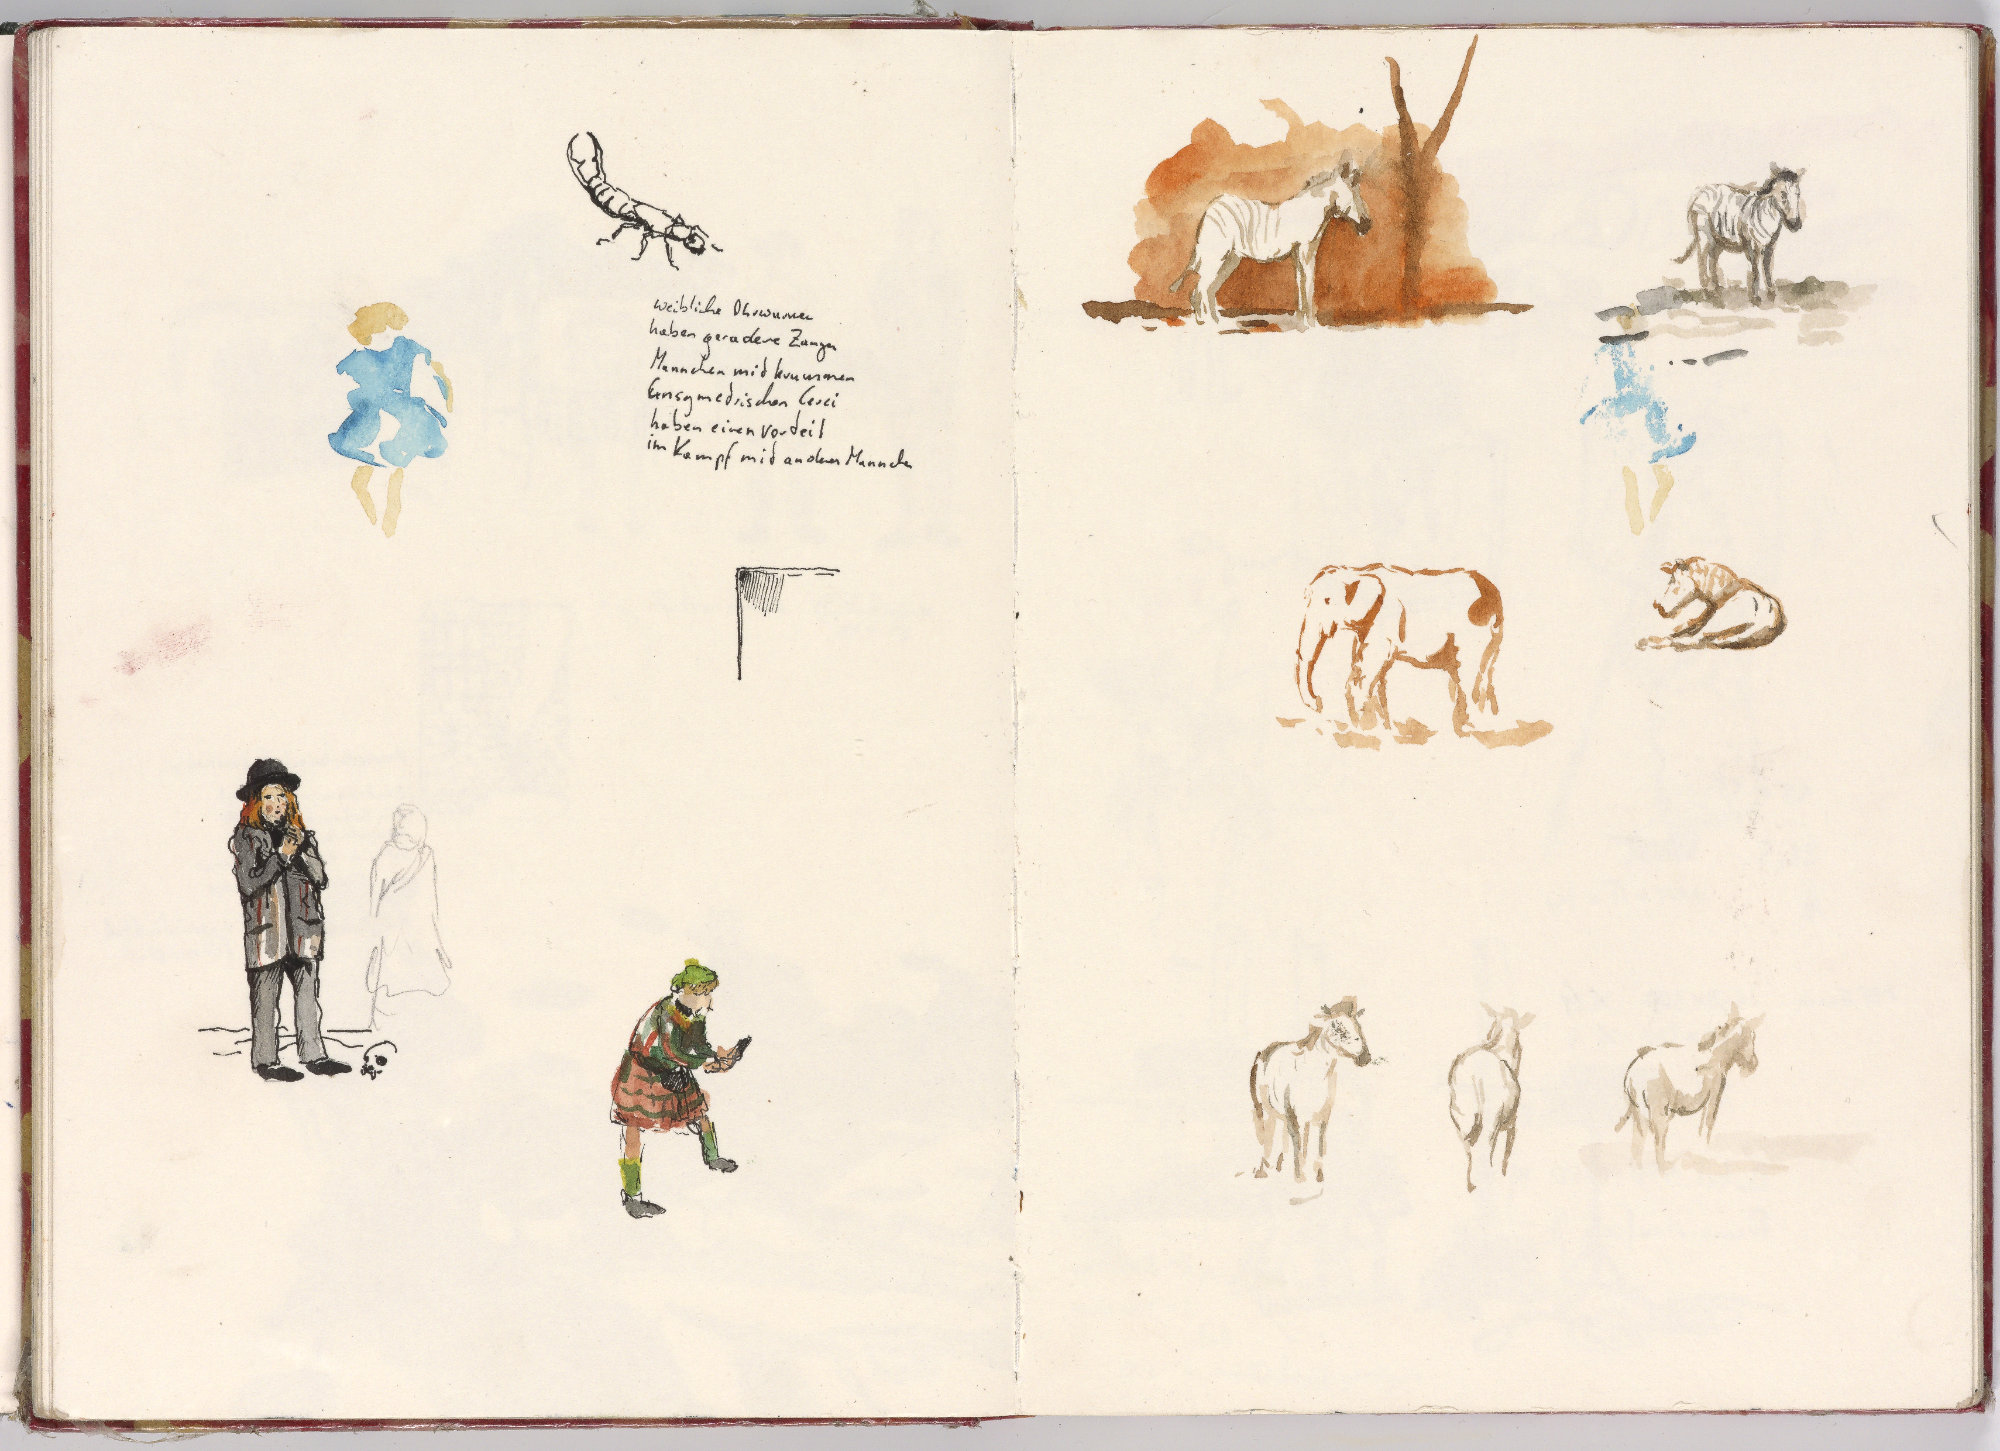 weibliche Ohrwurmer
haben geradere Zangen
Mannchen mid krummen
Ensymedrischen Cerci
haben einen Vordeil
im Kampf mid anderen Mannchen